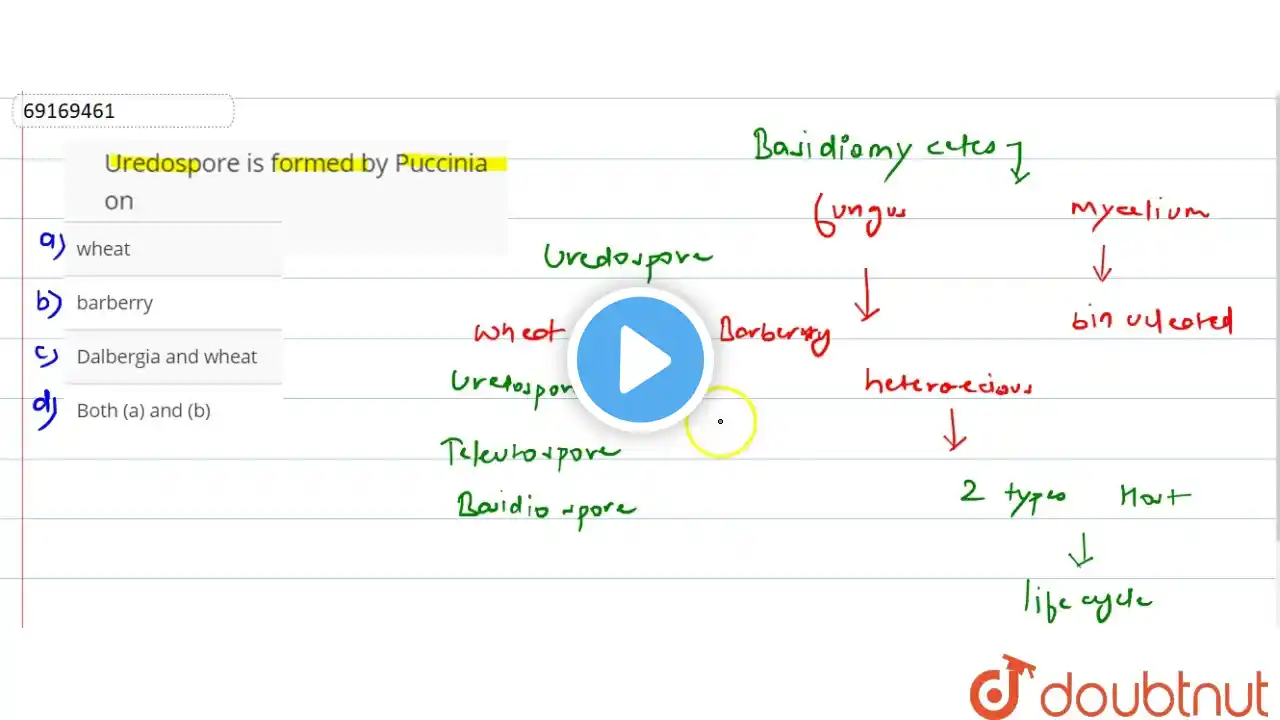 69169461
Uredospore is formed by Puccinia
on
a) wheat
b) barberry
c) Dalbergia and wheat
d) Both (a) and (b)
Basidiomycetes
fungus
mycelium
Uredospore
binucleated
wheat
Barberry
Uredospor
heteroecious
Teleutospore
Basidiospore
2 types Host
life cycle
doubtnut